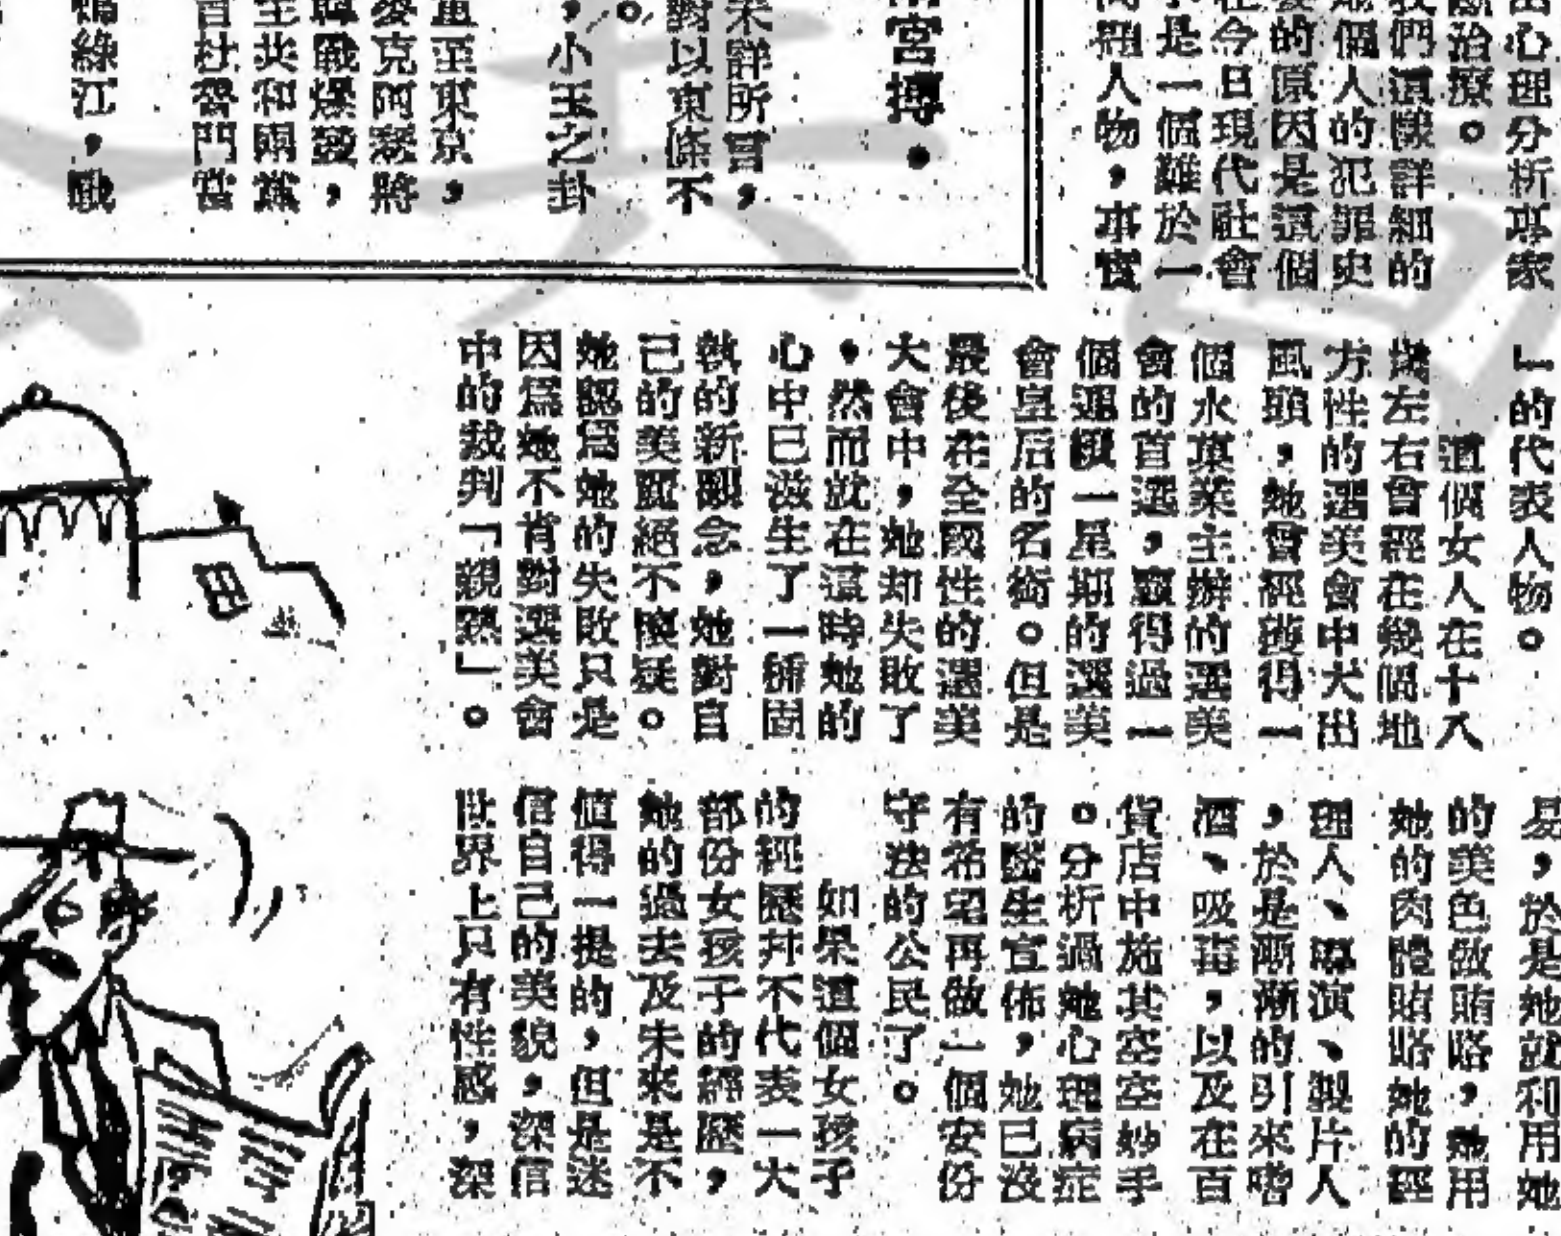 心理分析專家
斷治療。
我們這樣詳細的
她個人的犯罪史
要的原因是這個
在今日現代社會
不是一個難於一
問題人物，事實
宮搏．
未詳所冒，
對以東條不
。
，小玉之卦
至東京，
麥克阿瑟將
韓戰爆發，
至共和兩黨
杜魯門當
鴨綠江，戰
」的代表人物。
這個女人在十八
歲左右曾經在幾個地
方性的選美會中大出
風頭，她曾經獲得一
個水菓業主辦的選美
會的首選，贏得過一
個一星期的選美
會皇后的名銜。但是
最後在全國性的選美
大會中，她却失敗了
，然而就在這時她的
心中已滋生了一種固
執的新觀念，她對自
己的美麗絕不懷疑。
她認爲她的失敗只是
因爲她不肯對選美會
中的裁判「親熱」。
易，於是她就利用她
的美色做賄賂，她用
她的肉體賄賂她的經
理人、導演、製片人
，於是漸漸的引來嗜
酒、吸毒，以及在百
貨店中施其空空妙手
。分析過她心理病症
的醫生宣佈，她已沒
有希望再做一個安份
守法的公民了。
如果這個女孩子
的經歷幷不代表一大
部份女孩子的經歷，
她的過去及未來是不
値得一提的，但是迷
信自己的美貌，深信
世界上只有性感，深